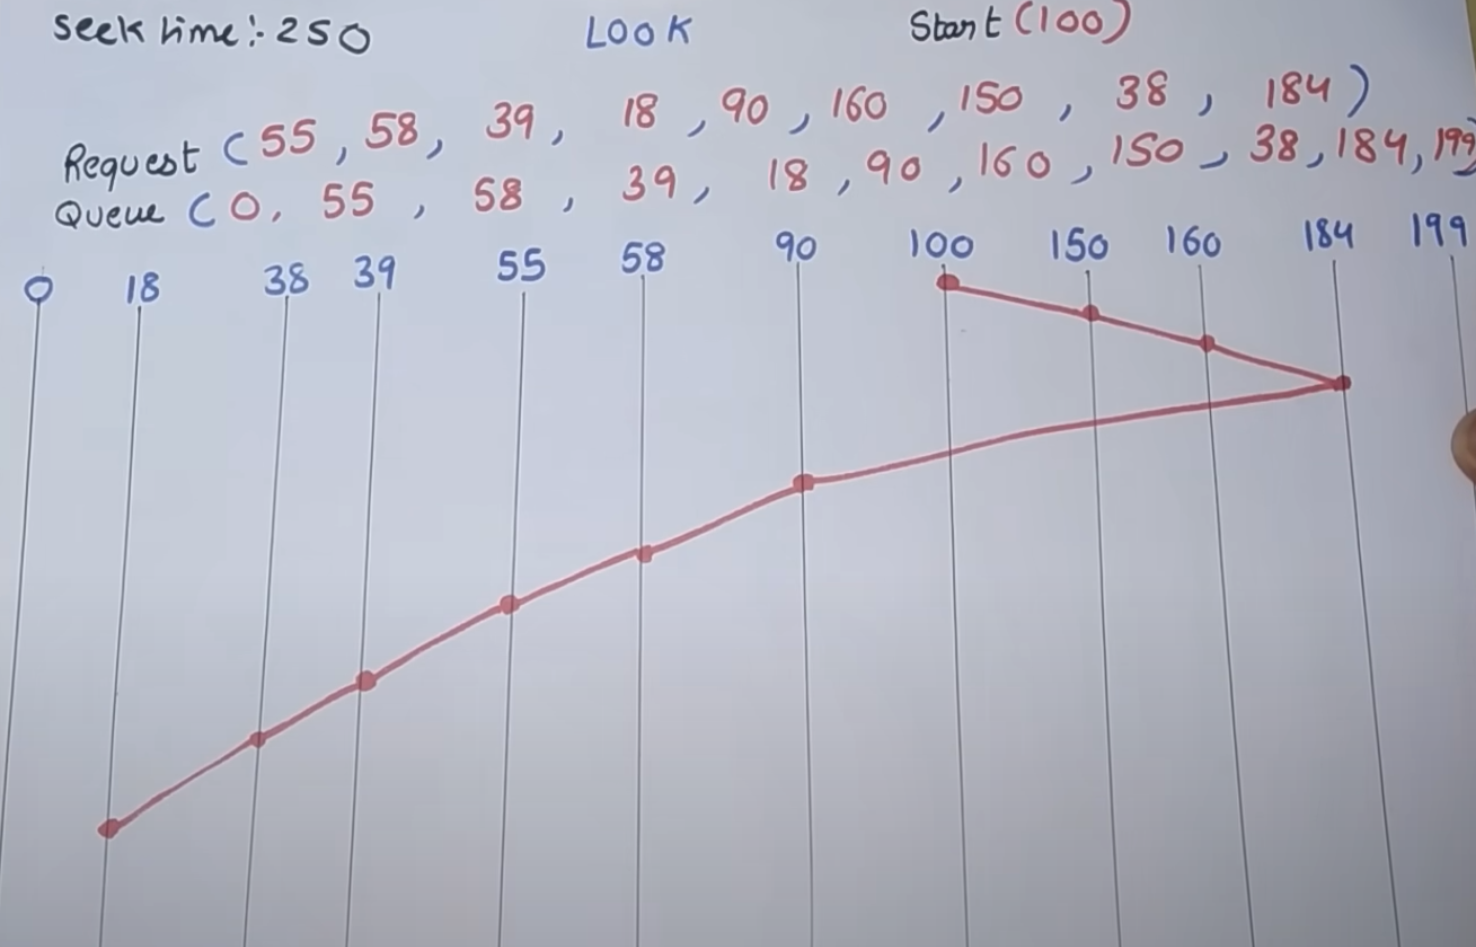 Seek time:- 250 LOOK Start (100)
Request (55, 58, 39, 18, 90, 160, 150, 38, 184)
Queue (0, 55, 58, 39, 18, 90, 160, 150, 38, 184, 199)
0 18 38 39 55 58 90 100 150 160 184 199